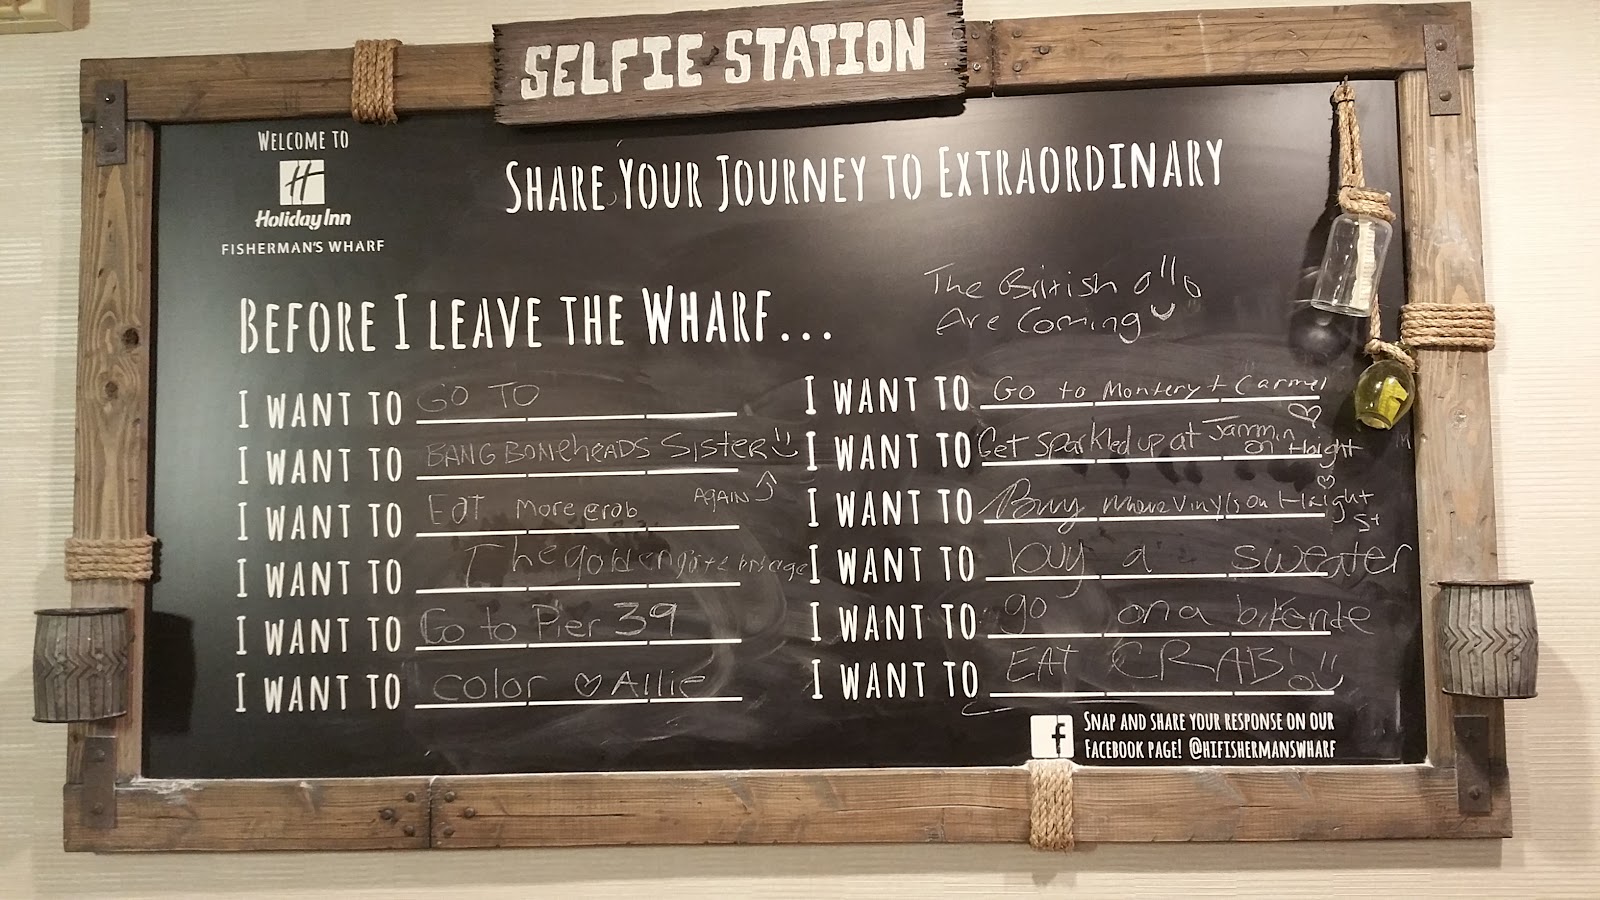 SELFIE STATION
WELCOME TO
H
Holiday Inn
FISHERMAN'S WHARF
SHARE YOUR JOURNEY TO EXTRAORDINARY
The British
Are Coming
BEFORE I LEAVE THE WHARF...
I WANT TO GO TO
I WANT TO BANG BONEHEADS SISTER
AGAIN
I WANT TO Eat more crab
I WANT TO The golden gate bridage
I WANT TO Go to Pier 39
I WANT TO color ♡ Allie
I WANT TO Go to Montery + Carmel
I WANT TO Get sparkled up at Jammin on Haight
I WANT TO Buy more vinyls on Haight St
I WANT TO buy a sweater
I WANT TO go on a bike
I WANT TO EAT CRAB!
f
SNAP AND SHARE YOUR RESPONSE ON OUR
FACEBOOK PAGE! @HIFISHERMANSWHARF